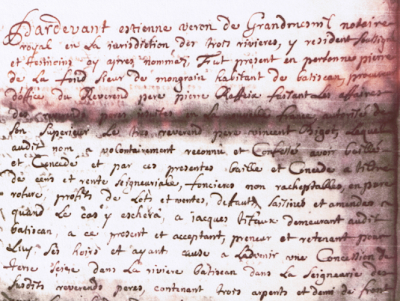 Pardevant estienne veron de Grandmesnil notaire
royal en La jurisdiction des trois rivieres, y resident soubsigné
et tesmoins cy apres nommez, Fut present en personne pierre
de La fond sieur de mongrain habitant de batiscan, procureur
d'office du Reverend pere pierre Raffeix faisant Les affaires
des reverends peres jesuites de La nouvelle france, authorisé de
son superieur Le tres reverend pere vincent Bigot Lequel
audit nom a volontairement reconnu et Confessé avoir baillé
et Concédé et par ces presentes baille et Concede a tiltre
de cens et rente seigneuriale, foncieres non racheptables, en pure
roture, profits de Lots et ventes, defauts, saisines et amendes
quand Le cas y eschera, a jacques demeurant audit
batiscan a ce present et acceptant, preneur et retenant pour
Luy ses hoirs et ayant cause a Ladvenir une Concession de
terre seize dans La riviere batiscan dans La seigneurie des
susdits reverends peres, contenant trois arpents et demi de front